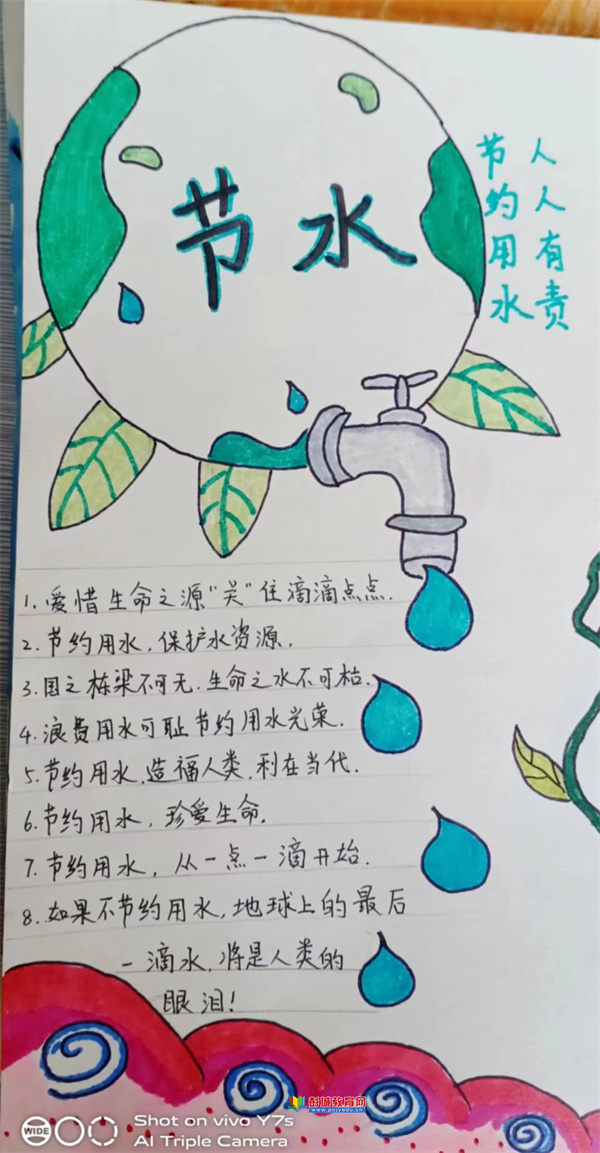 节水
节约用水
人人有责
1.爱惜生命之源"关"住滴滴点点.
2.节约用水.保护水资源.
3.国之栋梁不可无.生命之水不可枯.
4.浪费用水可耻节约用水光荣.
5.节约用水.造福人类.利在当代.
6.节约用水，珍爱生命.
7.节约用水，从一点一滴开始.
8.如果不节约用水,地球上的最后
一滴水,将是人类的
眼泪!
彭城教育网
www.pcjyedu.cn
WIDE
Shot on vivo Y7s
AI Triple Camera